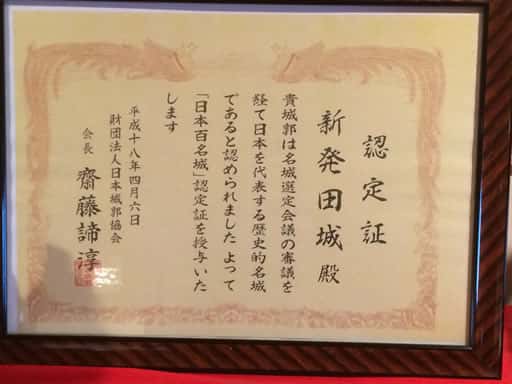 認定証
新発田城殿
貴城郭は名城選定会議の審議を
経て日本を代表する歴史的名城
であると認められました よって
「日本百名城」認定証を授与いた
します
平成十八年四月六日
財団法人日本城郭協会
会長 齋藤諦淳